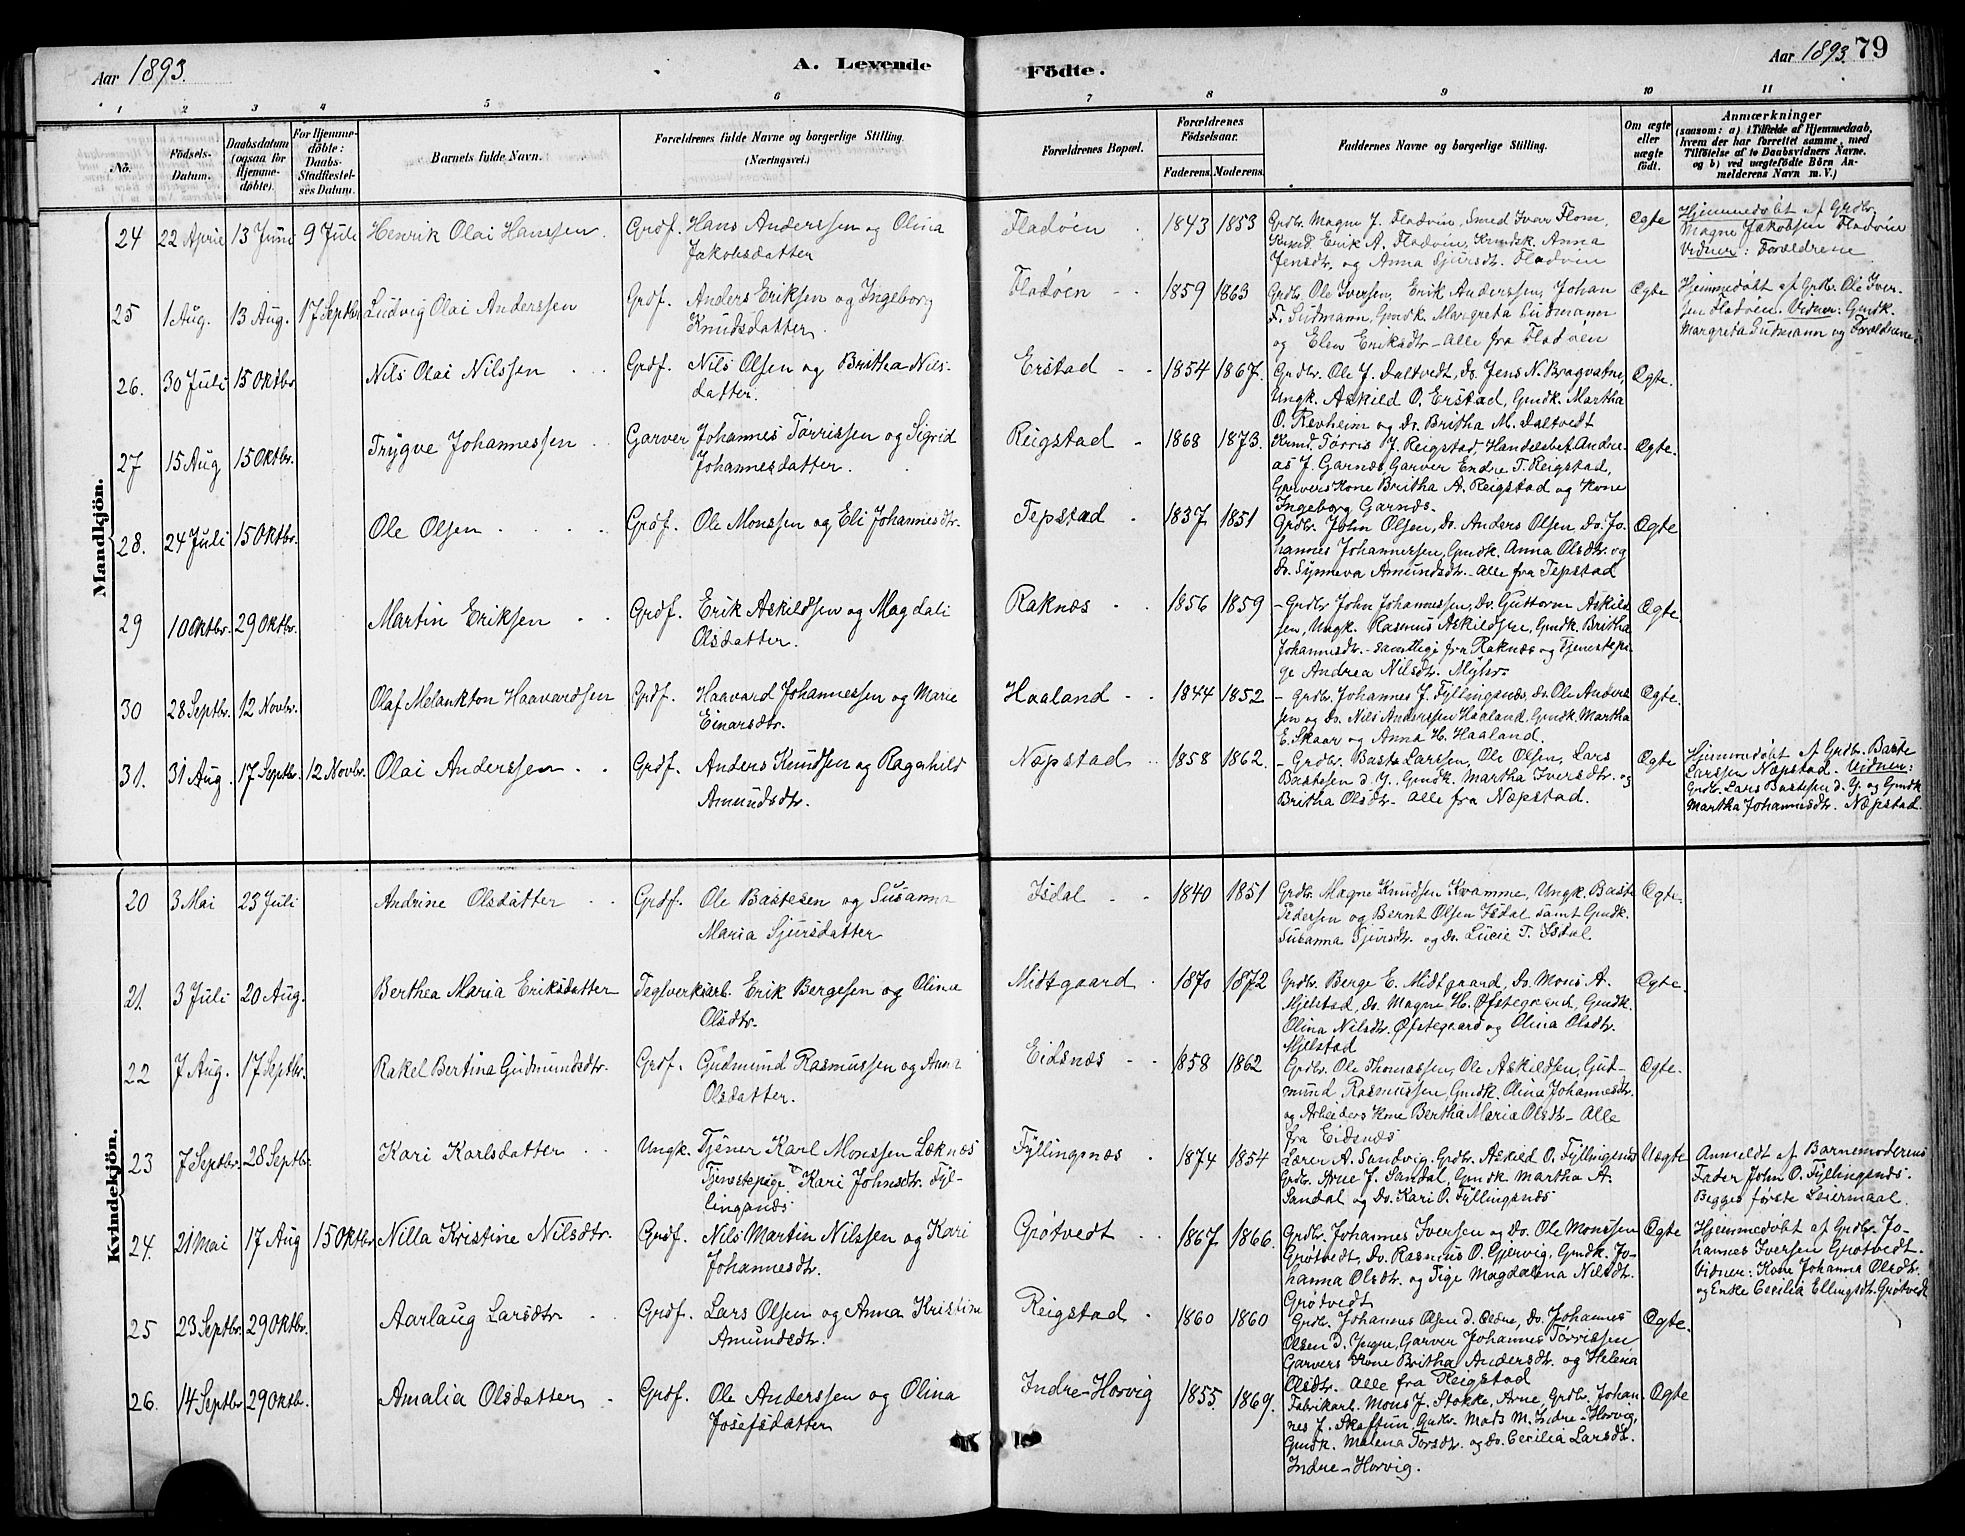 Aar 1893.
A. Levende
Födte.
Aar 1893. 79
1 2 3 4 5 6 7 8 9 10 11
No.
Födsels-
Datum.
Daabsdatum
(ogsaa for
Hjemme-
döbte).
For Hjemme-
döbte:
Daabs-
Stadfæstel-
ses Datum.
Barnets fulde Navn.
Forældrenes fulde Navne og borgerlige Stilling.
(Næringsvei.)
Forældrenes Bopæl.
Forældrenes
Födselsaar.
Faderens. Moderens.
Faddernes Navne og borgerlige Stilling.
Om ægte
eller
uægte
födt.
Anmærkninger
(saasom: a) i Tilfælde af Hjemmedaab,
hvem der har forrettet samme, med
Tilföielse af to Daabsvidners Navne.
og b) ved uægtefödte Börn An-
melderens Navn m. V.)
Mandkjön.
24 22 April 13 Juni 9 Juli Henrik Olai Hanssen. Grdf. Hans Anderssen og Olina
Jakobsdatter
Fladöen 1843 1853
Grdbr. Magne J. Fladöin, Smed Iver Flom,
Kmd. Erik A. Fladöin, Kmdsk. Anna
Jensdtr. og Anna Sjursdtr. Fladöen
Ægte
Hjemmedöbt af Grdbr.
Magne Jakobsen Fladöin
Vidner: Forældrene
25 1 Aug. 13 Aug. 17 Septbr. Ludvig Olai Anderssen Grdf. Anders Eriksen og Ingeborg
Knudsdatter.
Fladöen 1859 1863
Grdbr. Ole Iversen, Erik Anderssen, Johan
F. Sudmann, Gmdk. Margreta Sudmann
og Elen Eriksdtr – Alle fra Fladöen
Ægte
Hjemmedöbt af Grdbr. Ole Iver-
sen Fladöin. Vidner: Gmdk.
Margreta Sudmann og Forældrene.
26. 30 Juli 15 Oktbr. Nils Olai Nilssen Grdf. Nils Olsen og Britha Nils-
datter.
Erstad 1854 1867.
Grdbr. Ole J. Daltvedt, Do. Jens N. Bragvatne,
Ungk. Askild O. Erstad, Gmdk. Martha
O. Revheim og Do. Britha M. Daltvedt
Ægte.
27 15 Aug 15 Oktbr. Trygve Johannessen Garver Johannes Torrissen og Sigrid
Johannesdatter.
Reigstad 1868 1873.
Kmd. Torris J. Reigstad, Handelsbet. Andre-
as J. Garnæs, Garver Endre T. Reigstad,
Garvers Kone Britha A. Reigstad og Kone
Ingeborg Garnæs.
Ægte.
28. 24 Juli 15 Oktbr. Ole Olsen Grdf. Ole Monssen og Eli Johannesdtr.
Tepstad 1837 1851
Grdbr. John Olsen, Do. Anders Olsen, Do. Jo-
hannes Johannessen, Gmdk. Anna Olsdtr. og
Do. Synneva Amundsdtr. – Alle fra Tepstad
Ægte
29 10 Oktbr. 29 Oktbr. Martin Eriksen Grdf. Erik Askildsen og Magdali
Olsdatter.
Raknæs 1856 1859
– Grdbr John Johannessen, Do. Guttorm Askild-
sen, Ungk. Rasmus Askildsen, Gmdk. Britha
Johannesdtr. – samtlige fra Raknæs og Tjenestepi-
ge Andrea Nilsdtr. Myhr.
Ægte.
30 28 Septbr. 12 Novbr. Olaf Melankton Haavardsen Grdf. Haavard Johannessen og Marie
Einarsdtr.
Haaland 1844 1852
– Grdbr. Johannes J. Fyllingsnæs, Do. Ole Anders-
sen og Do. Nils Anderssen Haaland, Gmdk. Martha
E. Skaar og Anna H. Haaland.
Ægte.
31. 31 Aug. 17 Septbr. 12 Novbr. Olai Anderssen Grdf. Anders Knudsen og Ragnhild
Amundsdtr.
Næpstad 1858 1862.
– Grdbr. Baste Larssen, Ole Olsen, Lars
Bastesen d. Y. Gmdk. Martha Iversdtr. og
Britha Olsdtr. – Alle fra Næpstad.
Ægte
Hjemmedöbt af Grdbr. Baste
Larssen Næpstad. Vidner:
Grdbr. Lars Bastesen d. Y. og Gmdk.
Martha Johannesdtr. Næpstad.
Kvindekjön.
20 3 Mai 23 Juli Andrine Olsdatter Grdf. Ole Bastesen og Susanna
Maria Sjursdatter
Isdal 1840 1851
Grdbr. Magne Knudsen Kvamme, Ungk. Baste
Pedersen og Bernt Olsen Isdal samt Gmdk.
Susanna Sjursdtr. og Do. Lucie T. Isdal.
Ægte.
21. 3 Juli 20 Aug. Berthea Maria Eriksdatter Teglverksarb. Erik Bergesen og Olina
Olsdtr.
Midtgaard 1870 1872
Grdbr. Berge E. Midtgaard, Do. Mons A.
Mjelstad, Do. Magne H. Öfstegaard, Gmdk.
Olina Nilsdtr. Öfstegaard og Olina Olsdtr.
Mjelstad
Ægte.
22 7 Aug. 17 Septbr. Rakel Bertina Gudmundsdtr. Grdf. Gudmund Rasmussen og Anna
Olsdatter.
Eidsnæs 1858 1862
Grdbr. Ole Thomassen, Ole Askildsen, Gud-
mund Rasmussen, Gmdk. Olina Johannesdtr.
og Arbeiders Kone Bertha Maria Olsdtr – Alle
fra Eidsnæs
Ægte.
23 7 Septbr. 28 Septbr. Kari Karlsdatter Ungk. Tjener Karl Monssen Læknæs
Tjenestepige Kari Johnsdtr. Fyl-
lingsnæs
Fyllingsnæs 1874 1854
Lærer A. Sandvig, Grdbr. Askild O. Fyllingsnæs
Grdbr. Arne J. Sandal, Gmdk. Martha A.
Sandal og Do. Kari O. Fyllingsnæs
Uægte
Anmeldt af Barnemoderens
Fader John O. Fyllingsnæs.
Begges første Leiermaal.
24. 21 Mai 17 Aug 15 Oktbr Nilla Kristine Nilsdtr. Grdf. Nils Martin Nilssen og Kari
Johannesdtr.
Grötvedt 1867 1866.
Grdbr. Johannes Iversen og Do. Ole Monssen
Grötvedt, Do. Rasmus O. Gjervig, Gmdk. Jo-
hanna Olsdtr. og Pige Magdalena Nilsdtr.
Grötvedt
Ægte
Hjemmedöbt af Grdbr. Jo-
hannes Iversen Grötvedt.
Vidner: Kone Johanna Olsdtr.
og Enke Cecilia Ellingsdtr. Grötvedt
25 23 Septbr. 29 Oktbr. Aarlaug Larsdtr. Grdf. Lars Olsen og Anna Kristine
Amundsdtr.
Reigstad 1860 1860
Grdbr. Johannes Olsen d. Ældre, Do. Johannes
Olsen d. Yngre, Garver Johannes Torrissen
Garvers Kone Britha Andersdtr. og Helena
Olsdtr. Alle fra Reigstad
Ægte.
26. 14 Septbr 29 Oktbr. Amalia Olsdatter Grdf. Ole Anderssen og Olina
Josefsdatter
Indre-Horvig 1855 1869.
Fabrikarb. Mons J. Stokke, Arne, Grdbr. Johan-
nes J. Skaftun, Grdbr. Mads M. Indre-Horvig,
Gmdk. Malena Torsdtr. og Do. Cecilia Larsdtr.
Indre-Horvig.
Ægte